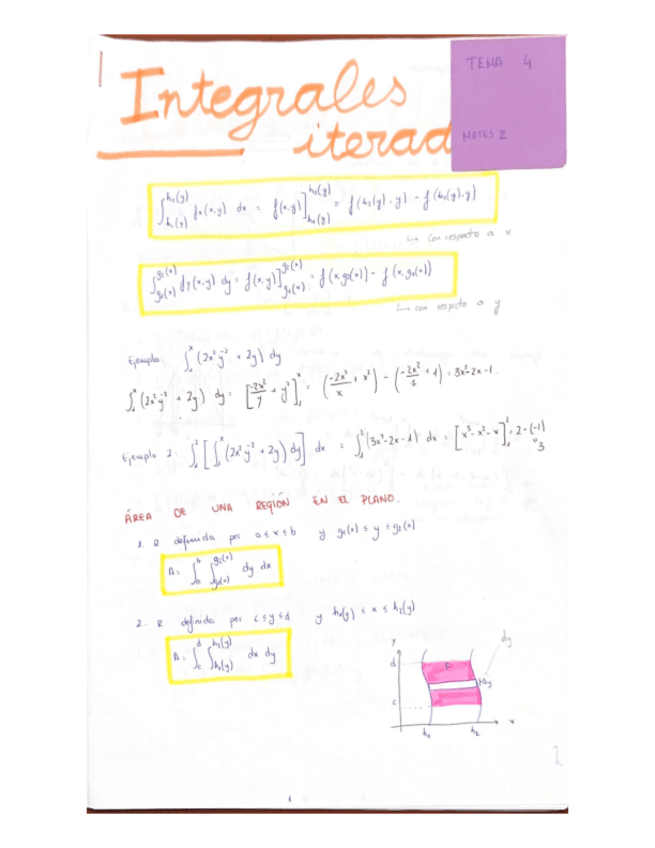 TEMA 4
Integrales
iterad
MATES II
∫_{h₁(y)}^{h₂(y)} fx(x,y) dx = f(x,y)]_{h₁(y)}^{h₂(y)} = f(h₂(y),y) - f(h₁(y),y)
↳ con respecto a x
∫_{g₁(x)}^{g₂(x)} fy(x,y) dy = f(x,y)]_{g₁(x)}^{g₂(x)} = f(x,g₂(x)) - f(x,g₁(x))
↳ con respecto a y
Ejemplo: ∫₁^x (2x²y⁻² + 2y) dy
∫₁^x (2x²y⁻² + 2y) dy = [-2x²/y + y²]₁^x = (-2x²/x + x²) - (-2x²/1 + 1) = 3x²-2x-1.
Ejemplo 2: ∫₁² [∫₁^x (2x²y⁻² + 2y) dy] dx = ∫₁² (3x²-2x-1) dx = [x³-x²-x]₁² = 2-(-1)
" 3
ÁREA DE UNA REGIÓN EN EL PLANO.
1. R definida por a ≤ x ≤ b y g₁(x) ≤ y ≤ g₂(x)
A = ∫_a^b ∫_{g₁(x)}^{g₂(x)} dy dx
2. R definida por c ≤ y ≤ d y h₁(y) ≤ x ≤ h₂(y)
A = ∫_c^d ∫_{h₁(y)}^{h₂(y)} dx dy
y
dy
d
R
Δy
c
x
h₁
h₂
1